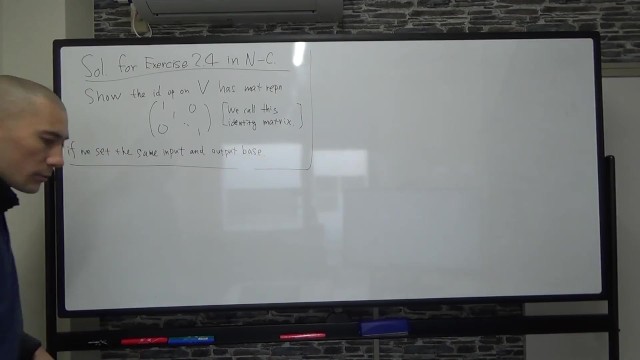 Sol for Exercise 2.4 in N-C.
Show the id op on V has mat repe
( 1 1 0 0 ⋱ 1 ) [We call this identity matrix.]
if we set the same input and output base.